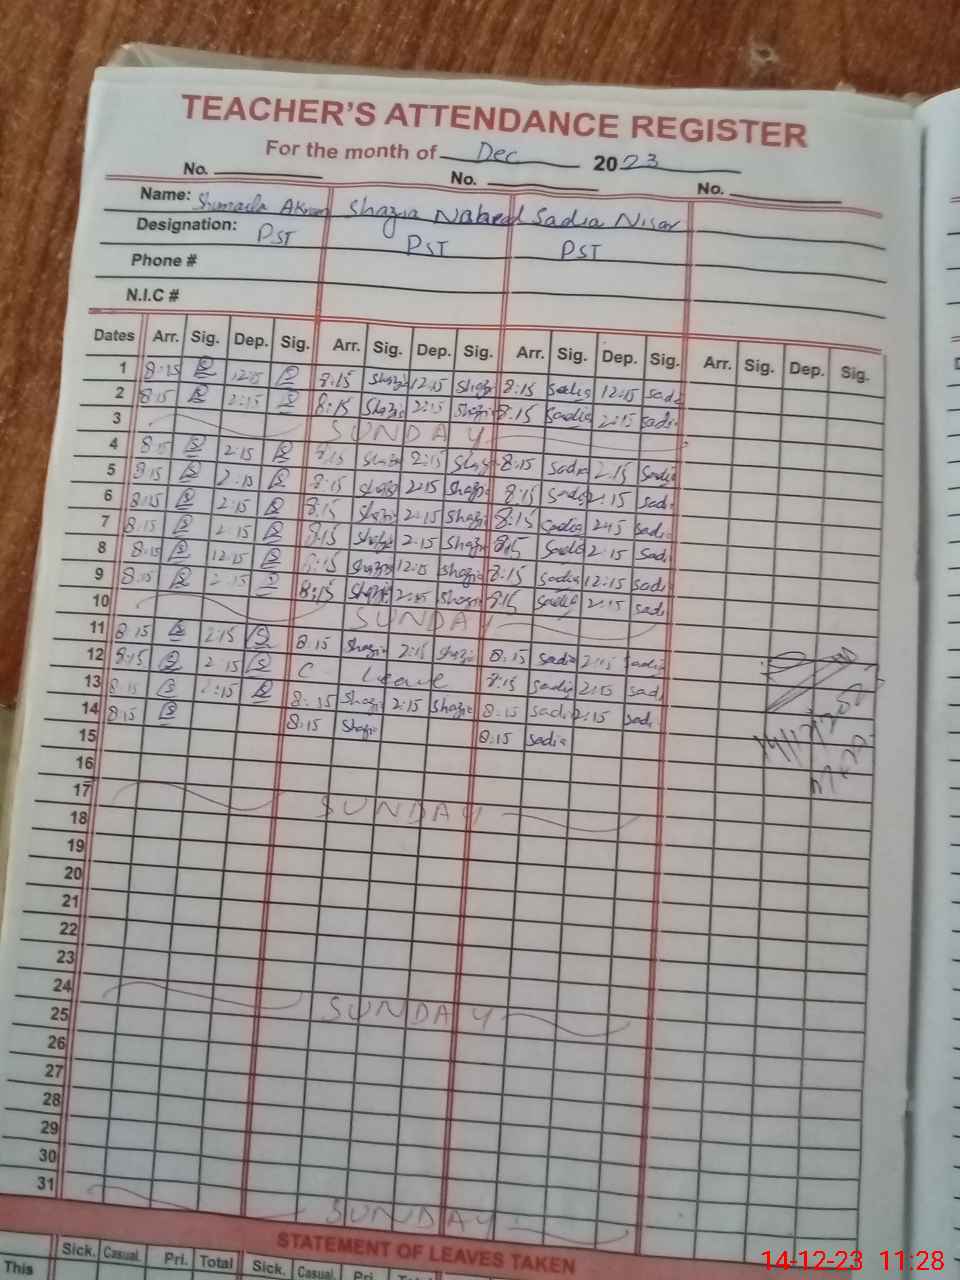 TEACHER'S ATTENDANCE REGISTER
For the month of Dec 2023
No. No. No.
Name: Shumaila Akram Shazia Naheed Sadia Nisar
Designation: PST PST PST
Phone #
N.I.C #
Dates Arr. Sig. Dep. Sig. Arr. Sig. Dep. Sig. Arr. Sig. Dep. Sig. Arr. Sig. Dep. Sig.
1 8:15 S 12:15 S 8:15 Shazi 12:15 Shazi 8:15 Sadia 12:15 Sadi
2 8:15 S 2:15 S 8:15 Shazi 2:15 Shazi 8:15 Sadia 2:15 Sadi
3 SUNDAY
4 8:15 S 2:15 S 8:15 Shazi 2:15 Shazi 8:15 Sadia 2:15 Sadia
5 8:15 S 2:15 S 8:15 Shazi 2:15 Shazi 8:15 Sadia 2:15 Sadi
6 8:15 S 2:15 S 8:15 Shazi 2:15 Shazi 8:15 Sadia 2:15 Sadi
7 8:15 S 2:15 S 8:15 Shazi 2:15 Shazi 8:15 Sadia 2:15 Sadi
8 8:15 S 12:15 S 8:15 Shazi 12:15 Shazi 8:15 Sadia 12:15 Sadi
9 8:15 S 2:15 S 8:15 Shazi 2:15 Shazi 8:15 Sadia 2:15 Sadi
10 SUNDAY
11 8:15 S 2:15 S 8:15 Shazi 2:15 Shazi 8:15 Sadia 2:15 Sadia
12 8:15 S 2:15 S C leave 8:15 Sadia 2:15 Sadi
13 8:15 S 2:15 S 8:15 Shazi 2:15 Shazia 8:15 Sadia 2:15 Sadi
14 8:15 S 8:15 Shazi 8:15 Sadia
15
16
17 SUNDAY
18
19
20
21
22
23
24 SUNDAY
25
26
27
28
29
30
31 SUNDAY
STATEMENT OF LEAVES TAKEN
Sick. Casual. Pri. Total Sick. Casual. Pri.
This
14-12-23 11:28